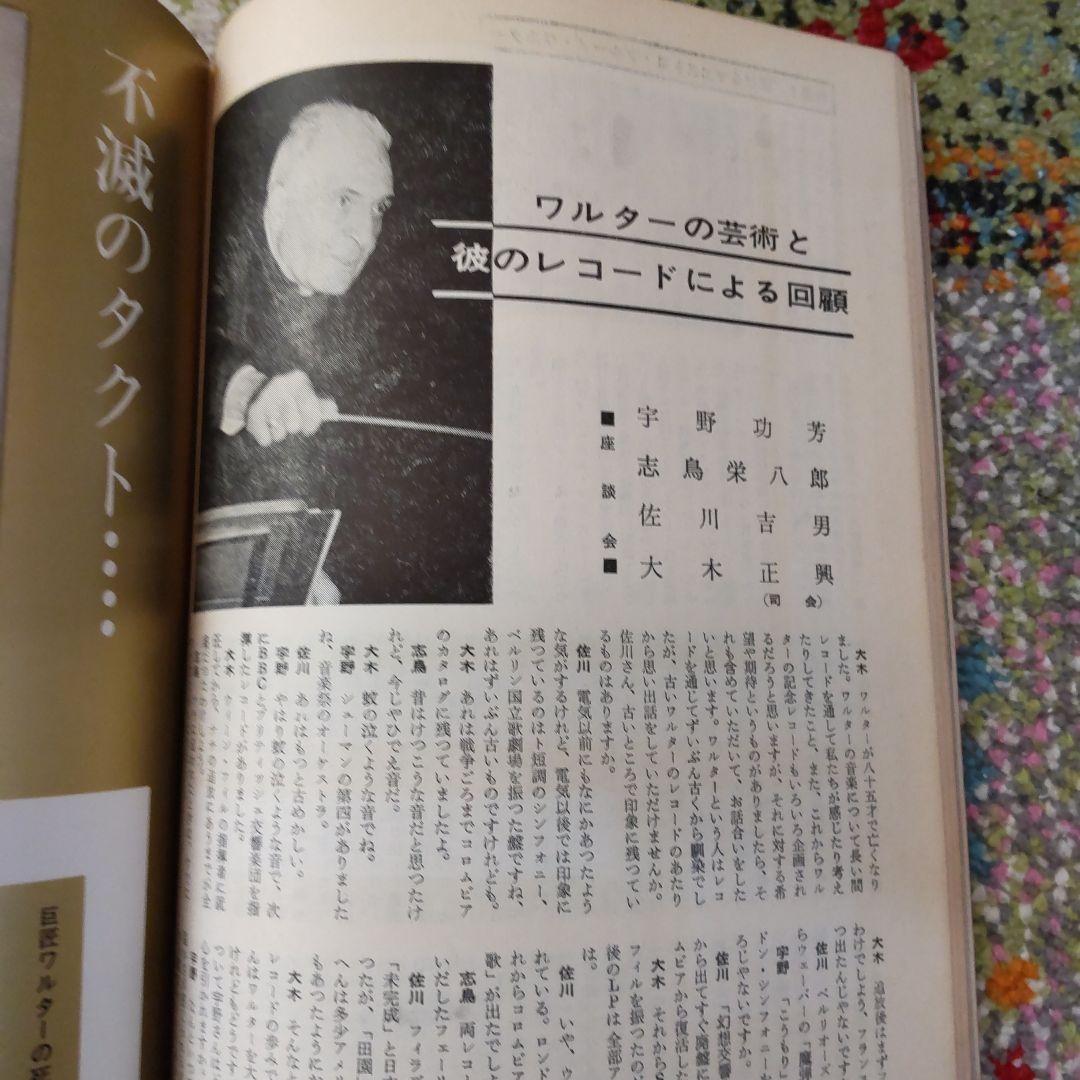 不滅のタクト……
巨匠ワルターの
ワルターの芸術と
彼のレコードによる回顧
■座談会■
宇野功芳
志鳥栄八郎
佐川吉男
大木正興
(司会)
大木 ワルターが八十五才で亡くなり
ました。ワルターの音楽について長い間
レコードを通して私たちが感じたり考え
たりしてきたこと、また、これからワル
ターの記念レコードもいろいろ企画され
るだろうと思いますが、それに対する希
望や期待というものがありましたら、そ
れも含めていただいて、お話合いをした
いと思います。ワルターという人はレコ
ードを通じてずいぶん古くから馴染でし
たが、古いワルターのレコードのあたり
から思い出話をしていただけませんか。
佐川さん、古いところで印象に残ってい
るものはありますか。
佐川 電気以前にもなにかあつたよう
な気がするけれど、電気以後では印象に
残つているのはト短調のシンフォニー、
ベルリン国立歌劇場を振つた盤ですね、
あれはずいぶん古いものですけれども。
大木 あれは戦争ごろまでコロムビア
のカタログに残つていましたよ。
志鳥 昔はけつこうな音だと思つたけ
れど、今しやひでえ音だ。
大木 蚊の泣くような音でね。
宇野 シューマンの第四がありました
ね、音楽祭のオーケストラ。
佐川 あれはもつと古めかしい。
宇野 やはり蚊の泣くような音で、次
にBBCとブリティッシュ交響楽団を指
揮したレコードがありました。
大木 ウィーン・フィルの指揮者に就
大木 追放後はまず
わけでしよう、フランス
つ出たんじやないです
佐川 ベルリオーズ
らウェーバーの「魔弾
宇野 「こうもり」
ドン・シンフォニー
ろじやないですか。
佐川 「幻想交響
から出てすぐ廃盤に
ムビアから復活した
大木 それから
フィルを振つたのは
後のLPは全部ア
は。
佐川 いや、ウ
れている。ロンド
れからコロムビア
歌」が出たでしよ
志鳥 両レコー
いだしたフェー
佐川 フィラデ
「未完成」と日本
つたが、「田園」
へんは多少アメリ
もあつたように
大木 そんな
レコードの歩べ
んはワルターを大
けれどもどうです